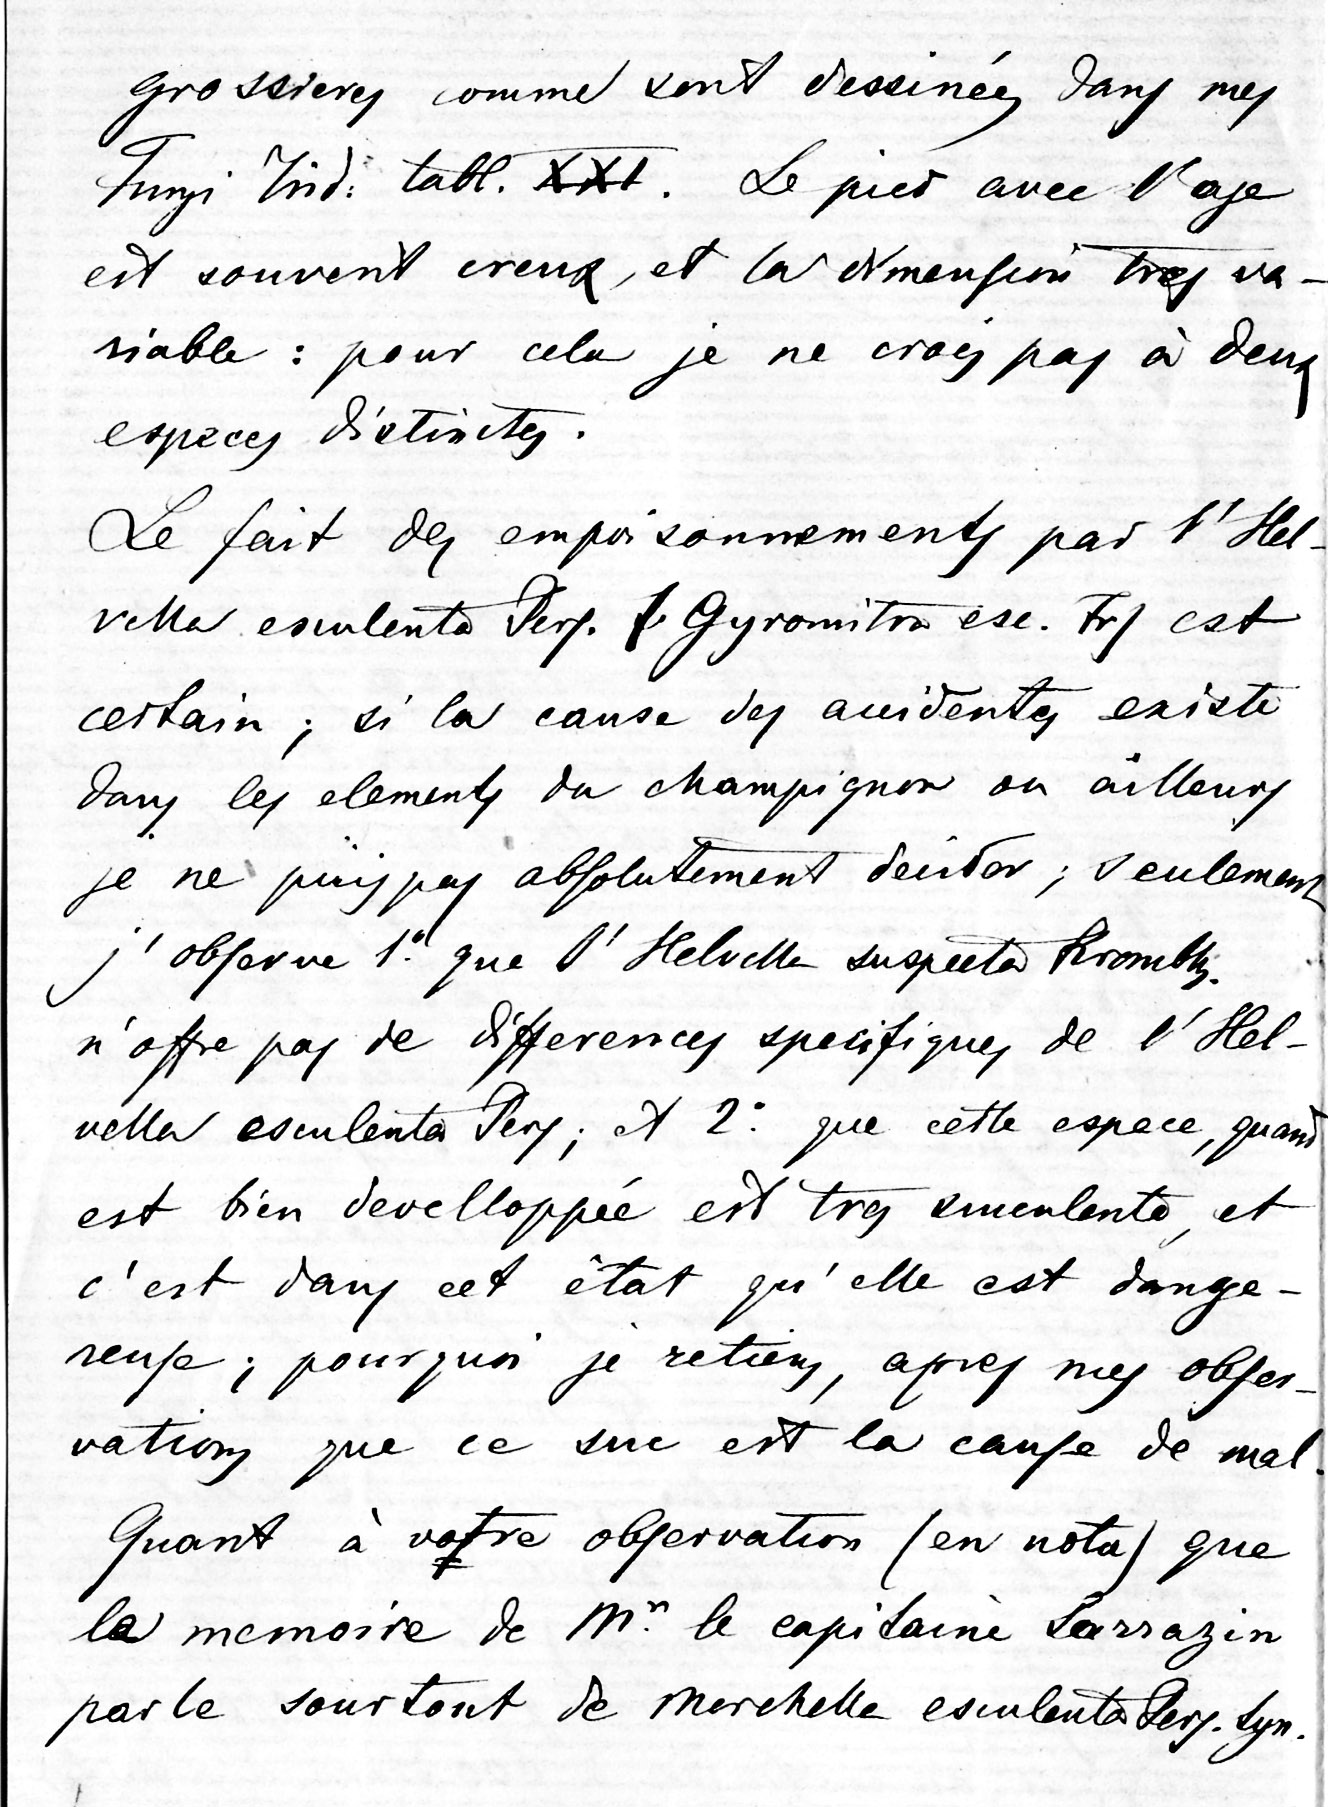 grossieres comme sont dessinées dans mes
Fungi Trid: tabl. XXI. Le pied avec l'age
est souvent creux, et la dimension tres va-
riable : pour cela je ne crois pas à deux
espèces distinctes.
Le fait des empoisonnements par l'Hel-
vella esculenta Pers. f. Gyromitra esc. Frs est
certain ; si la cause des accidentes existe
dans les elements du champignon ou ailleurs
je ne puis pas absolutement decider ; seulement
j'observe 1.° que l'Helvella suspecta Krombh.
n'offre pas de differences specifiques de l'Hel-
vella esculenta Pers ; et 2.° que cette espece, quand
est bien develloppée est tres succulente, et
c'est dans cet ètat qu'elle est dange-
reuse ; pourquoi je retiens, apres mes obser-
vations que ce suc est la cause de mal.
Quant à votre observation (en nota) que
la memoire de M.r le capitaine Sarrazin
parle sourtout de Morchella esculenta Pers. Syn.